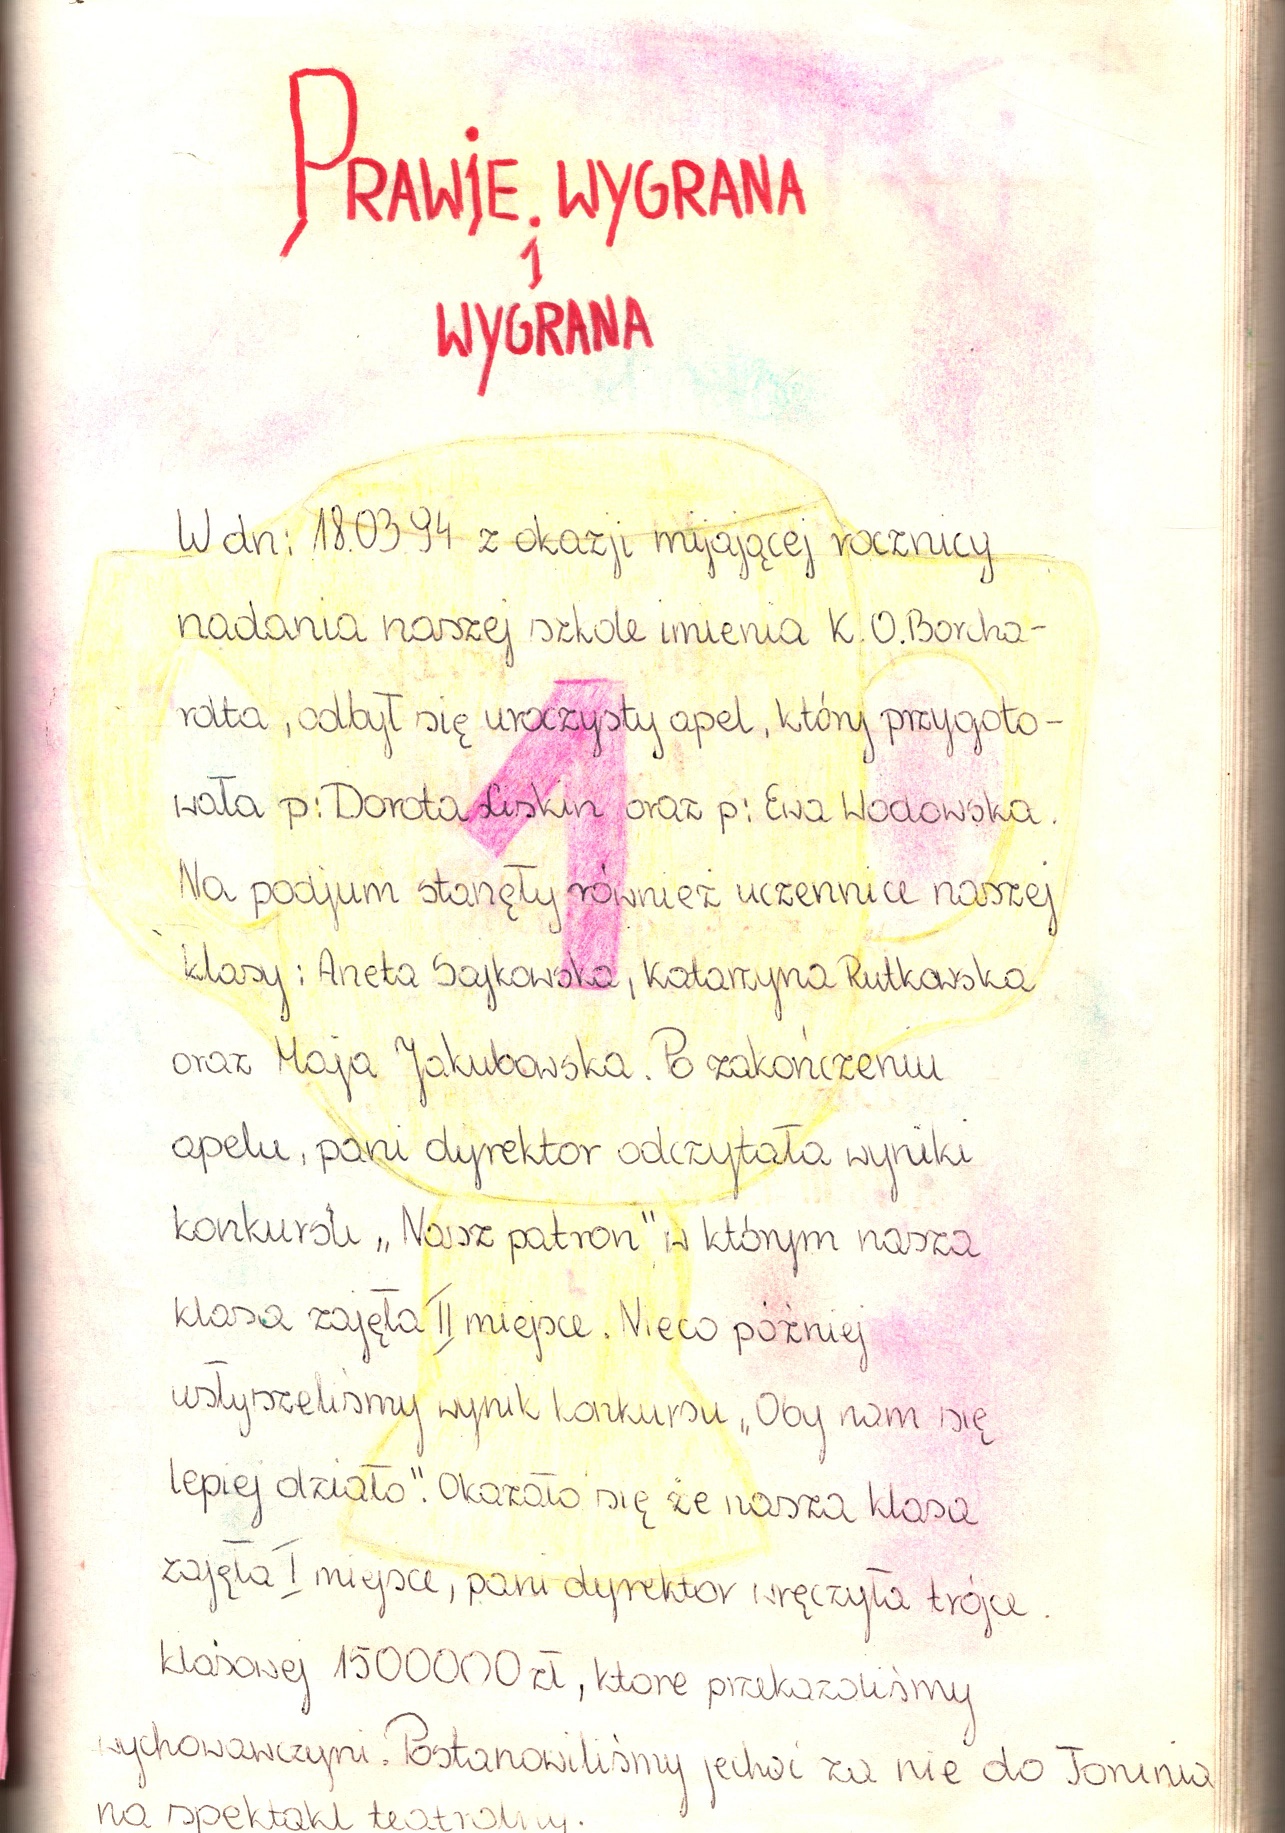 PRAWIE WYGRANA
i
WYGRANA
1
W dn: 18.03.94 z okazji mijającej rocznicy
nadania naszej szkole imienia K.O.Borcha-
rdta, odbył się uroczysty apel, który przygoto-
wała p: Dorota Liskin oraz p: Ewa Wodowska.
Na podjum stanęły również uczennice naszej
klasy: Aneta Sajkowska, Katarzyna Rutkowska
oraz Maja Jakubowska. Po zakończeniu
apelu, pani dyrektor odczytała wyniki
konkursu „Nasz patron" w którym nasza
klasa zajęła II miejsce. Nieco później
usłyszeliśmy wynik konkursu „Oby nam się
lepiej działo". Okazało się że nasza klasa
zajęła I miejsce, pani dyrektor wręczyła trójce
klasowej 1500000 zł, które przekazaliśmy
wychowawczyni. Postanowiliśmy jechać za nie do Torunia
na spektakl teatralny.